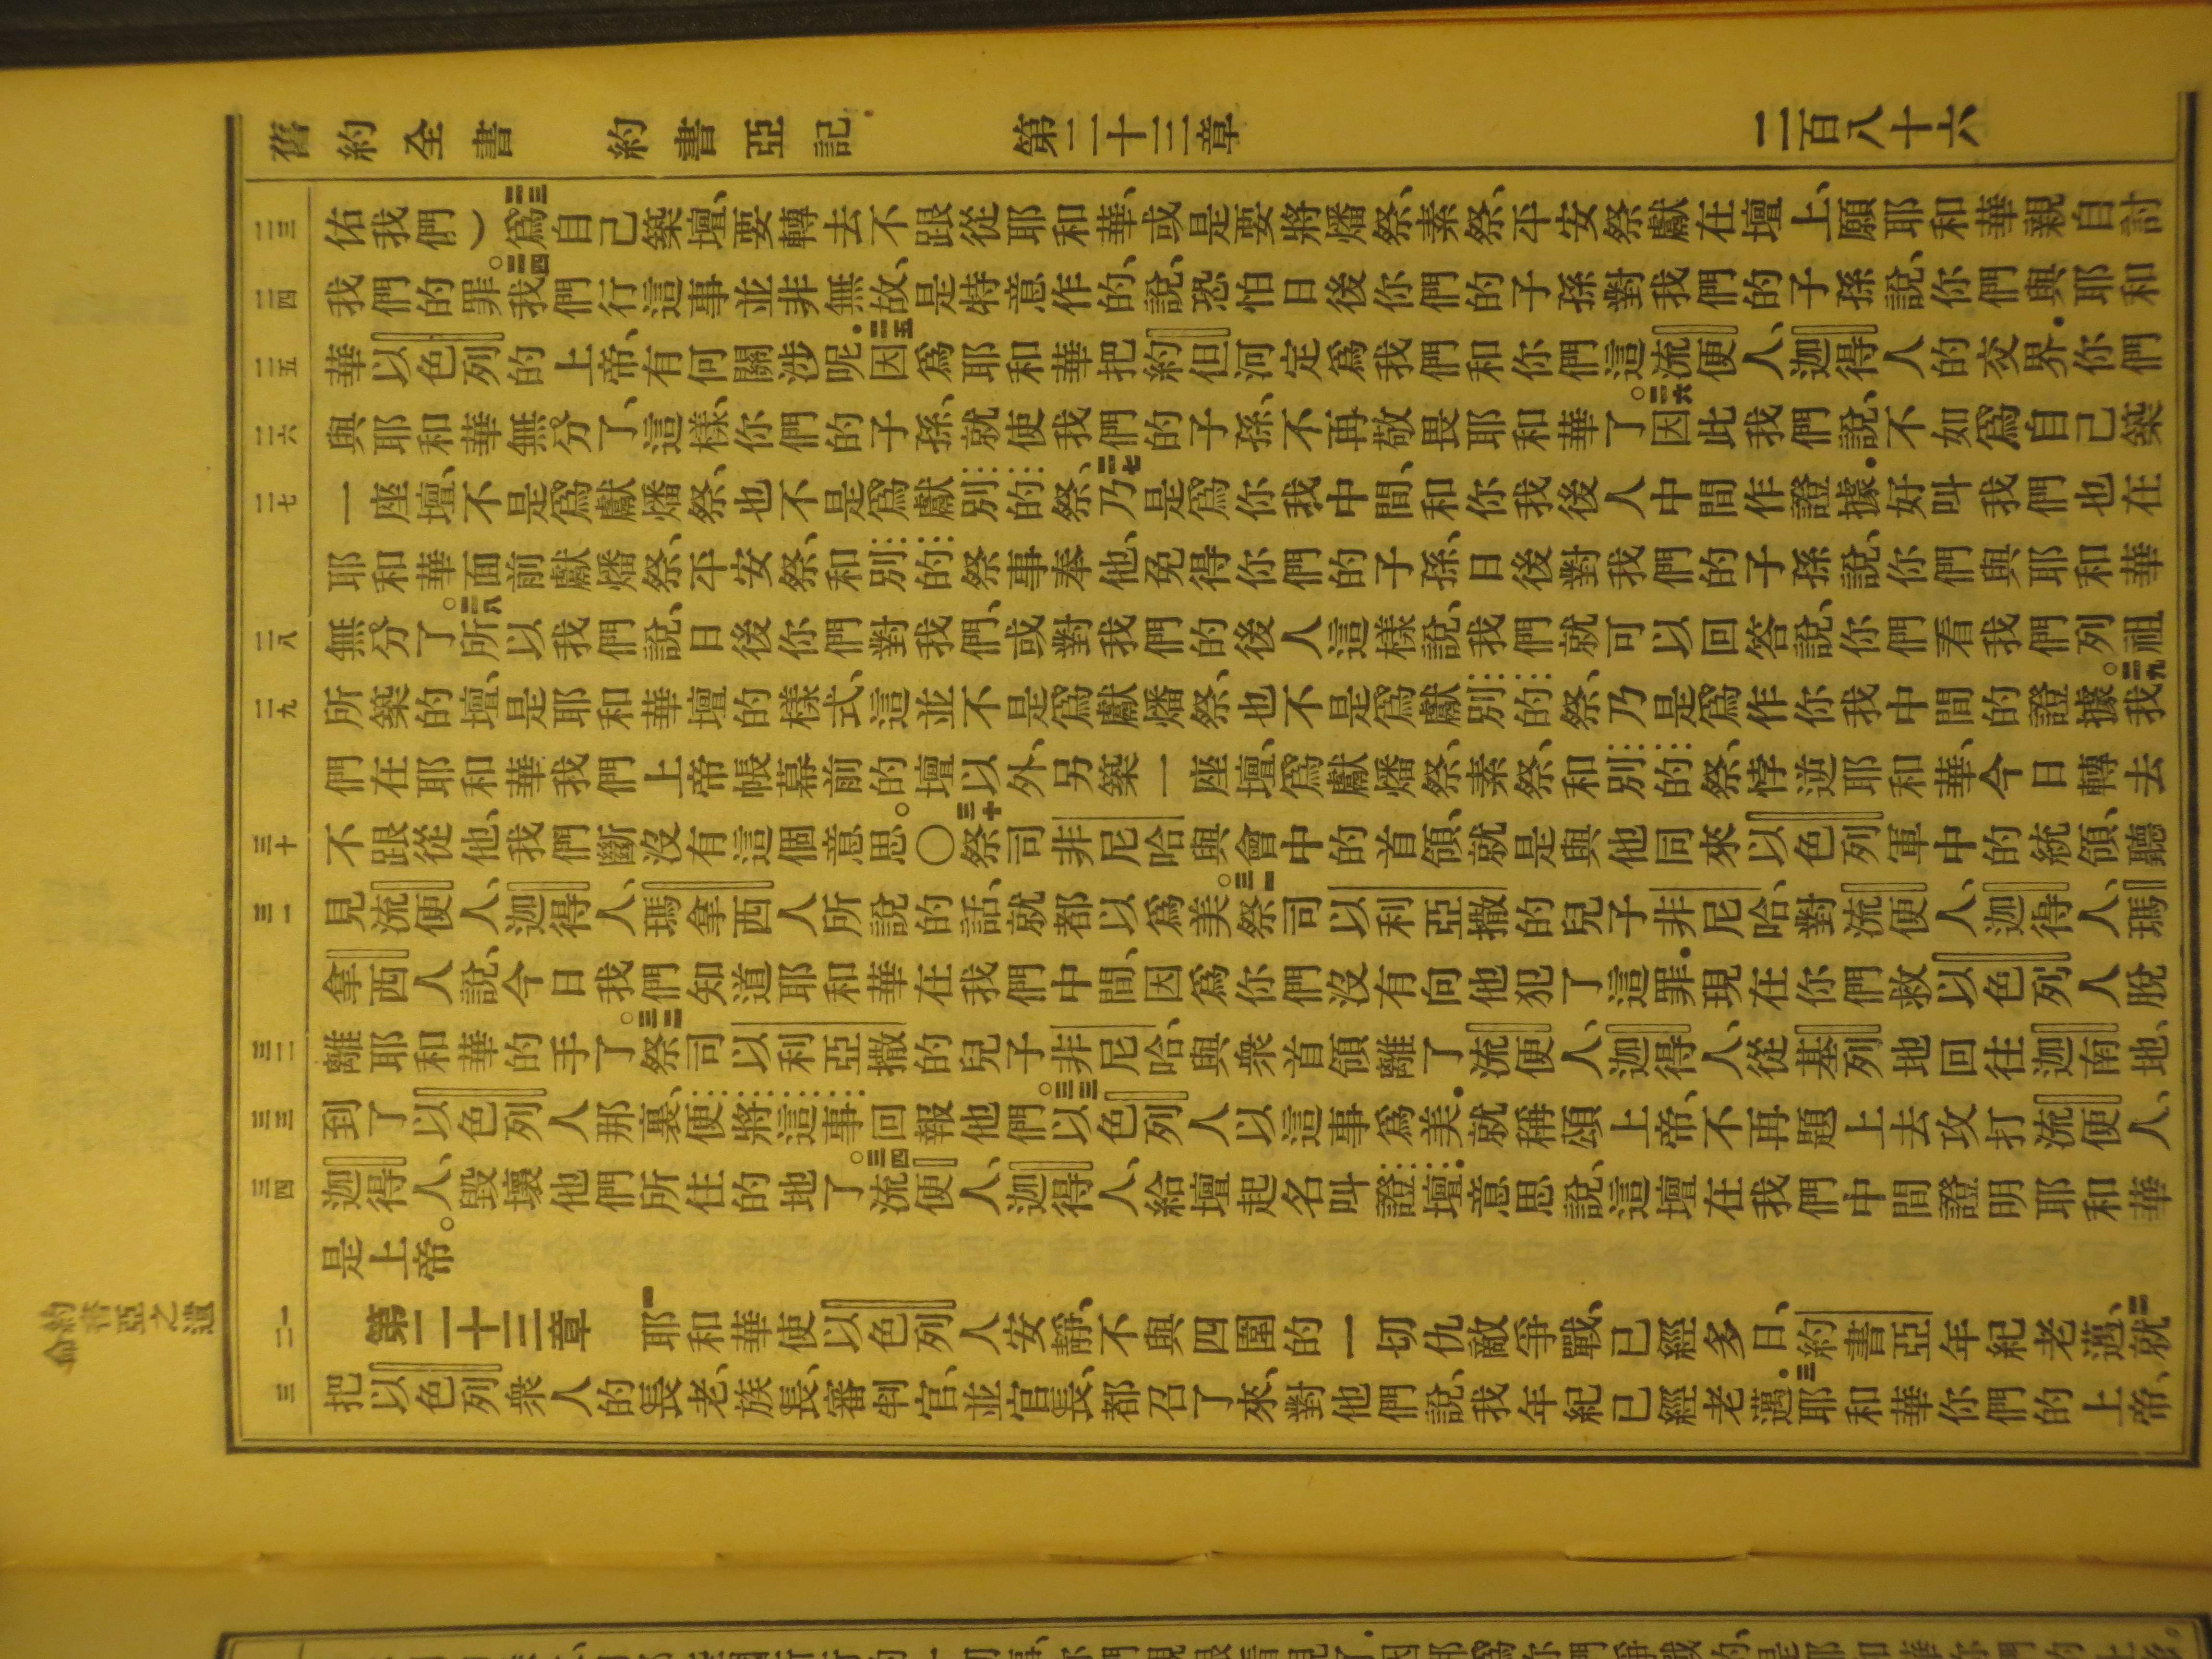 舊約全書　約書亞記　第二十三章　二百八十六
二三
佑我們）二三爲自己築壇、要轉去不跟從耶和華、或是要將燔祭、素祭、平安祭獻在壇上、願耶和華親自討
二四
我們的罪。二四我們行這事並非無故、是特意作的、說、恐怕日後你們的子孫對我們的子孫說、你們與耶和
二五
華以色列的上帝、有何關涉呢．二五因爲耶和華把約但河定爲我們和你們這流便人、迦得人的交界．你們
二六
與耶和華無分了、這樣、你們的子孫、就使我們的子孫、不再敬畏耶和華了。二六因此我們說、不如爲自己築
二七
一座壇、不是爲獻燔祭、也不是爲獻別的祭、二七乃是爲你我中間、和你我後人中間作證據．好叫我們也在
耶和華面前獻燔祭、平安祭、和別的祭事奉他、免得你們的子孫、日後對我們的子孫說、你們與耶和華
二八
無分了。二八所以我們說、日後你們對我們、或對我們的後人這樣說、我們就可以回答說、你們看我們列祖
二九
所築的壇、是耶和華壇的樣式、這並不是爲獻燔祭、也不是爲獻別的祭、乃是爲作你我中間的證據。二九我
們在耶和華我們上帝帳幕前的壇以外、另築一座壇、爲獻燔祭、素祭、和別的祭、悖逆耶和華、今日轉去
三十
不跟從他、我們斷沒有這個意思。〇三十祭司非尼哈與會中的首領、就是與他同來以色列軍中的統領、聽
三一
見流便人、迦得人、瑪拿西人所說的話、就都以爲美。三一祭司以利亞撒的兒子非尼哈、對流便人、迦得人、瑪
拿西人說、今日我們知道耶和華在我們中間、因爲你們沒有向他犯了這罪．現在你們救以色列人脫
三二
離耶和華的手了。三二祭司以利亞撒的兒子非尼哈、與衆首領離了流便人、迦得人、從基列地回往迦南地、
三三
到了以色列人那裏、便將這事回報他們。三三以色列人以這事爲美．就稱頌上帝、不再題上去攻打流便人、
三四
迦得人、毀壞他們所住的地了。三四流便人、迦得人給壇起名叫證壇．意思說、這壇在我們中間證明耶和華
是上帝。
約書亞之遺命
一二
第二十三章　一耶和華使以色列人安靜、不與四圍的一切仇敵爭戰、已經多日、約書亞年紀老邁、二就
三
把以色列衆人的長老、族長、審判官、並官長、都召了來、對他們說、我年紀已經老邁．三耶和華你們的上帝、